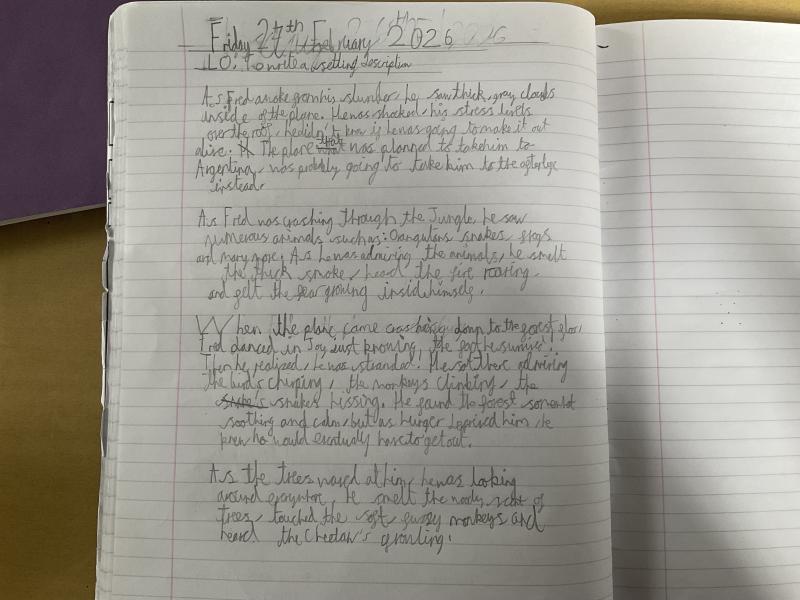 Friday 27th February 2026
LO: To write a setting description
As Fred awoke from his slumber, he saw thick, gray clouds
inside of the plane. He was shocked, his stress levels
over the roof, he didn't know if he was going to make it out
alive. The plane that was planned to take him to
Argentina, was probably going to take him to the afterlife
instead.
As Fred was crashing through the Jungle, he saw
numerous animals such as: Orangutans, snakes, frogs
and many more. As he was admiring the animals, he smelt
the thick smoke, heard the fire roaring,
and felt the fear growing inside himself.
When the plane came crashing down to the forest floor,
Fred danced in Joy Just knowing, the he survived.
Then he realized, he was stranded! He sat there admiring
the birds chirping, the monkeys climbing, the
snakes hissing. He found the forest somewhat
soothing and calm, but as hunger him, he
knew he would eventualy have to get out.
As the trees waved at him, he was looking
around he smelt the woody scent of
trees, touched the soft, fuzzy monkeys and
heard the Cheetah's growling.